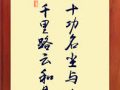 十功名尘与
千里路云和